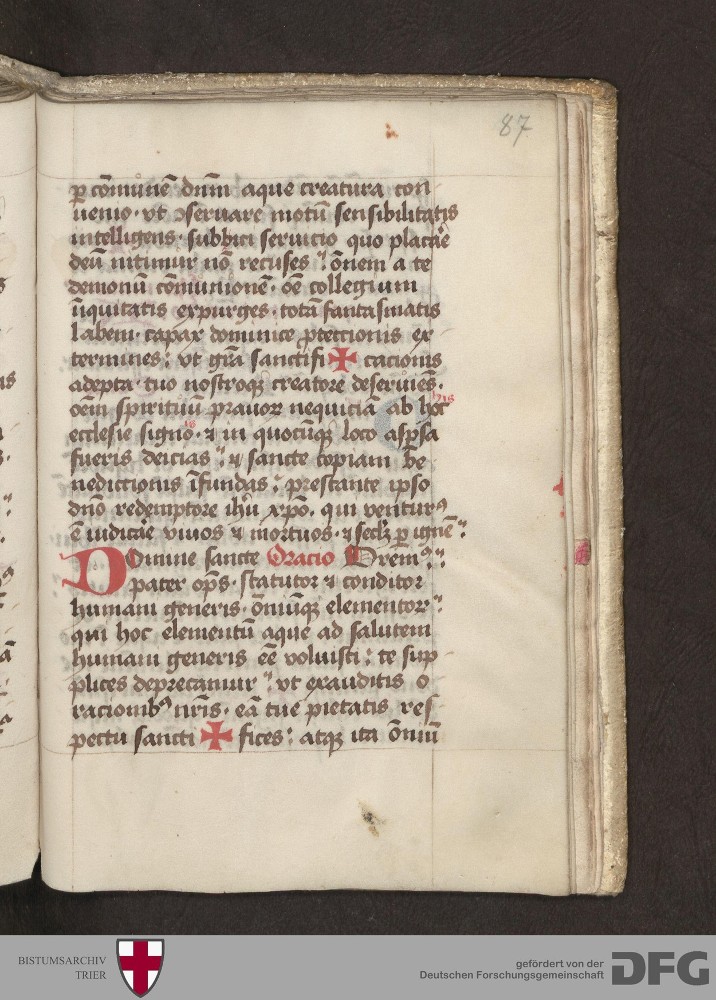 87
ꝑ cōmunē dnm̄ aque creatura con
uenio · vt ɔseruare motū sensibilitatis
intelligens · subbici seruicio quo placāe
deū nitimur nō recuses : ōnem a te
demonū cōmunionē · oē collegium
iniquitatis expurges · totā fantasmatis
labem · capax dominice ꝓtectionis ex
termines : vt grā sanctifi ✠ cacionis
adepta · tuo nostroqꝫ creatore deseruiēs ·
oēm spirituū prauoꝝ nequiciā ab hoc his
ecclesie signo is · ⁊ in quocūqꝫ loco asꝑsa
fueris deicias : ⁊ sancte copiam be
nedictionis īfundas : prestante ipso
dnō redemptore ihū xpō · qui venturꝰ
ē iudicāe viuos ⁊ mortuos · ⁊ seclꝫ ꝑ ignē :
Domine sancte Oracio Orem9 :
pater op̄s · statutor ⁊ conditor
humani generis · ōniūqꝫ elementoꝝ :
qui hoc elementū aque ad salutem
humani generis eē voluisti : te sup
plices deprecamur : vt exauditis o
racionibꝰ nrīs · eā tue pietatis res
pectu sancti ✠ fices : atqꝫ ita ōniū
BISTUMSARCHIV
TRIER
gefördert von der
Deutschen Forschungsgemeinschaft
DFG